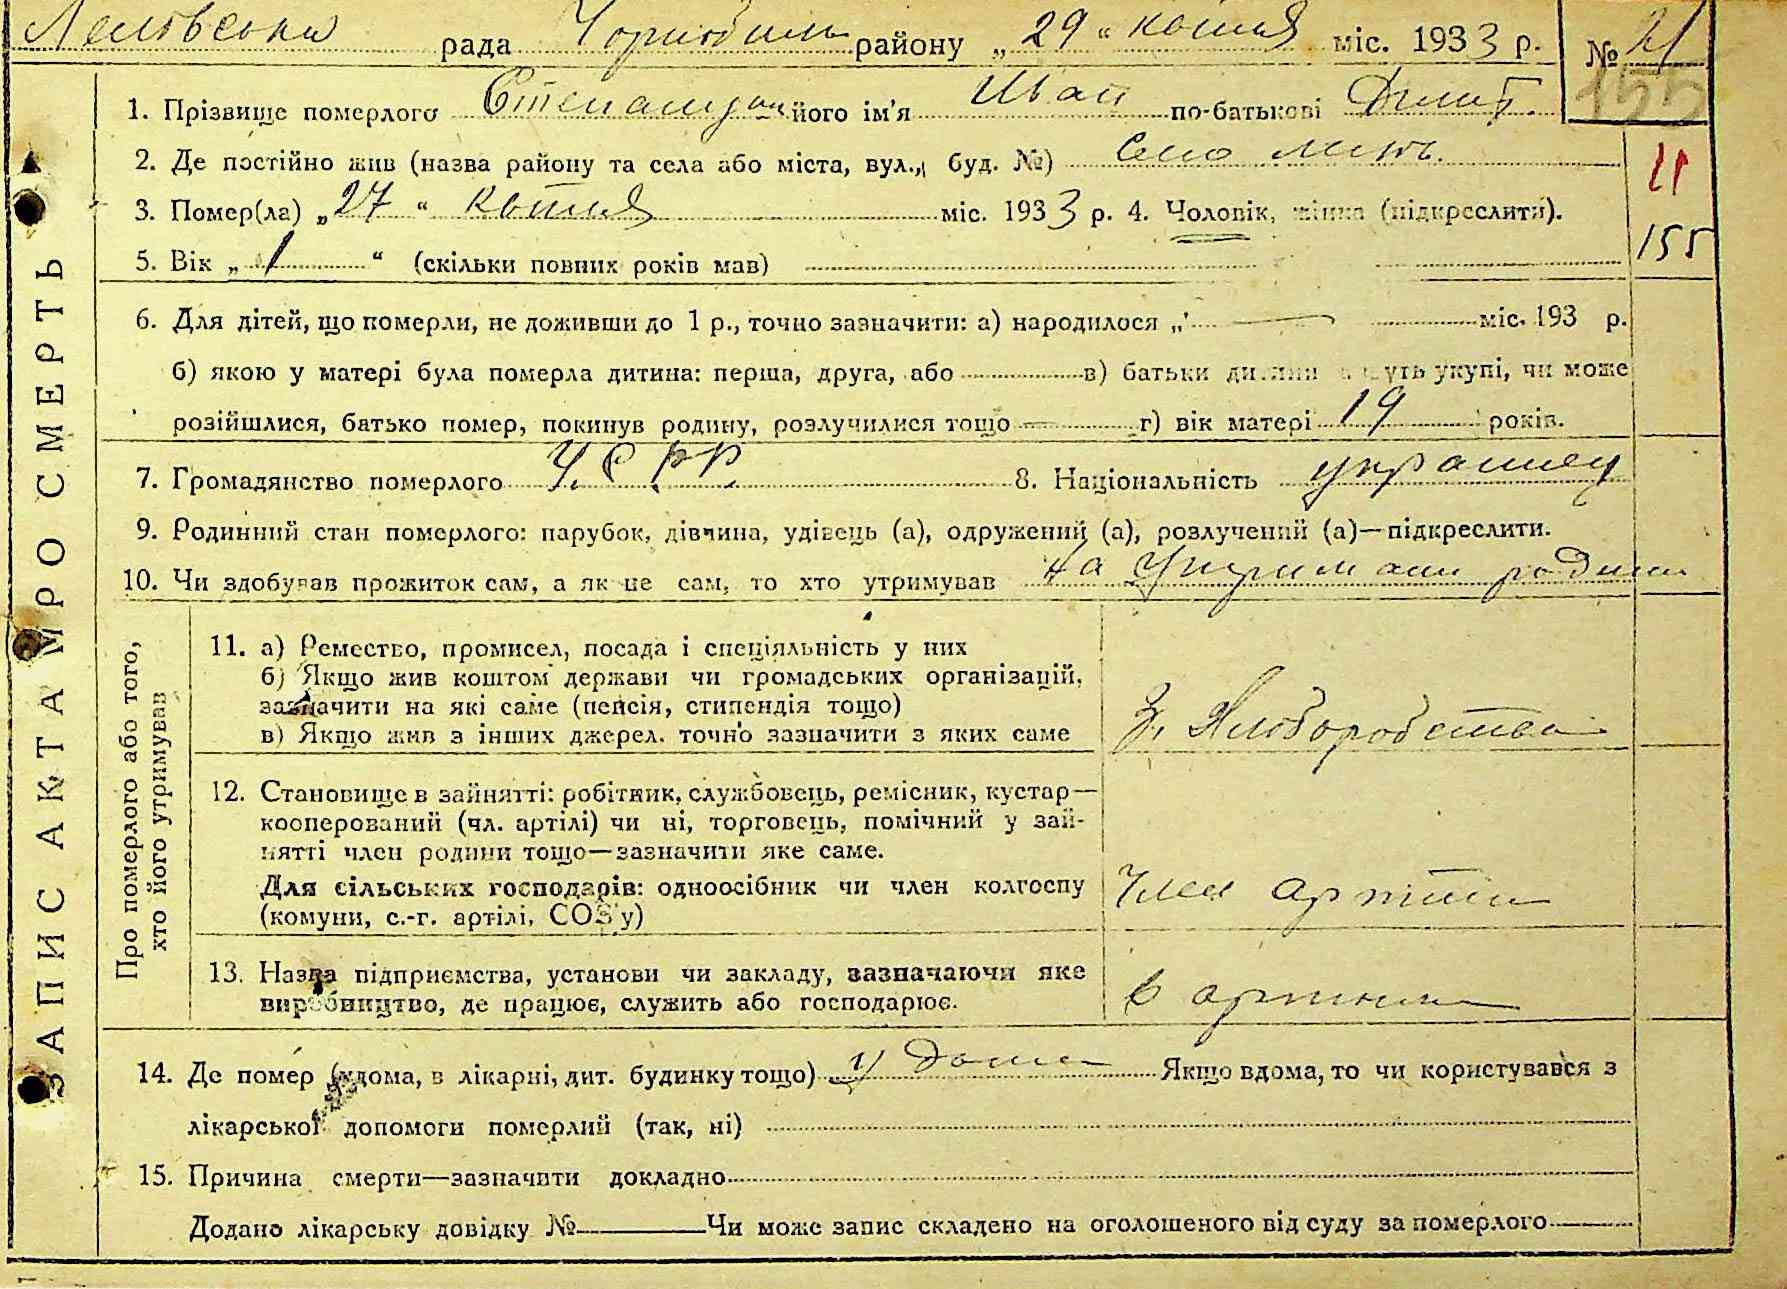 рада Чорнобиль району „29“ квітня міс. 1933 р. № 21
155
1. Прізвище померлого його ім'я Иван по-батькові Дмит.
2. Де постійно жив (назва району та села або міста, вул., буд. №) Село
21
3. Помер(ла) „27“ квітня міс. 1933 р. 4. Чоловік, жінка (підкреслити).
155
5. Вік „1“ (скільки повних років мав)
6. Для дітей, що померли, не доживши до 1 р., точно зазначити: а) народилося „ — міс. 193 р.
б) якою у матері була померла дитина: перша, друга, або в) батьки дитини живуть укупі, чи може
розійшлися, батько помер, покинув родину, розлучилися тощо — г) вік матері 19 років.
7. Громадянство померлого У.С.Р.Р. 8. Національність украінец
9. Родинний стан померлого: парубок, дівчина, удівець (а), одружений (а), розлучений (а)—підкреслити.
10. Чи здобував прожиток сам, а як не сам, то хто утримував На утриманні родини
ЗАПИС АКТА ПРО СМЕРТЬ
Про померлого або того,
хто його утримував
11. а) Ремество, промисел, посада і спеціяльність у них
б) Якщо жив коштом держави чи громадських організацій,
зазначити на які саме (пенсія, стипендія тощо)
в) Якщо жив з інших джерел. точно зазначити з яких саме
З. Хліборобства
12. Становище в зайнятті: робітник, службовець, ремісник, кустар—
кооперований (чл. артілі) чи ні, торговець, помічний у зай-
нятті член родини тощо—зазначити яке саме.
Для сільських господарів: одноосібник чи член колгоспу
(комуни, с.-г. артілі, СОЗ'у)
Член артіли
13. Назва підприємства, установи чи закладу, зазначаючи яке
виробництво, де працює, служить або господарює.
в артили
14. Де помер (вдома, в лікарні, дит. будинку тощо) у дома Якщо вдома, то чи користувався з
лікарської допомоги померлий (так, ні)
15. Причина смерти—зазначити докладно
Додано лікарську довідку № Чи може запис складено на оголошеного від суду за померлого